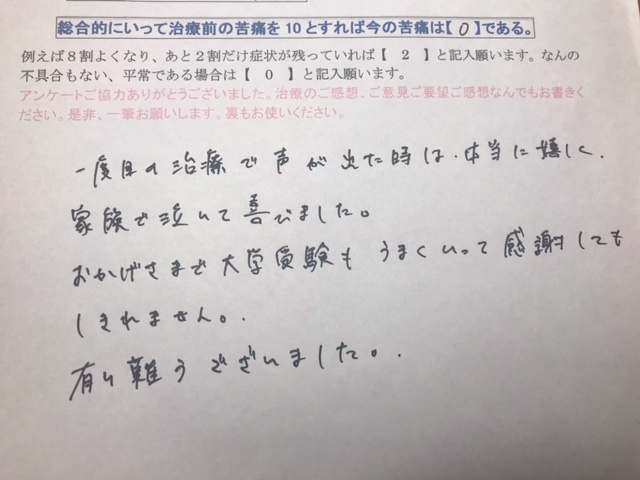 総合的にいって治療前の苦痛を10とすれば今の苦痛は【 0 】である。
例えば8割よくなり、あと2割だけ症状が残っていれば【 2 】と記入願います。なんの
不具合もない、平常である場合は【 0 】と記入願います。
アンケートご協力ありがとうございました。治療のご感想、ご意見ご要望ご感想なんでもお書きく
ださい。是非、一筆お願いします。裏もお使いください。
一度目の治療で声が出た時は、本当に嬉しく、
家族で泣いて喜びました。
おかげさまで大学受験もうまくいって感謝しても
しきれません。
有り難うございました。